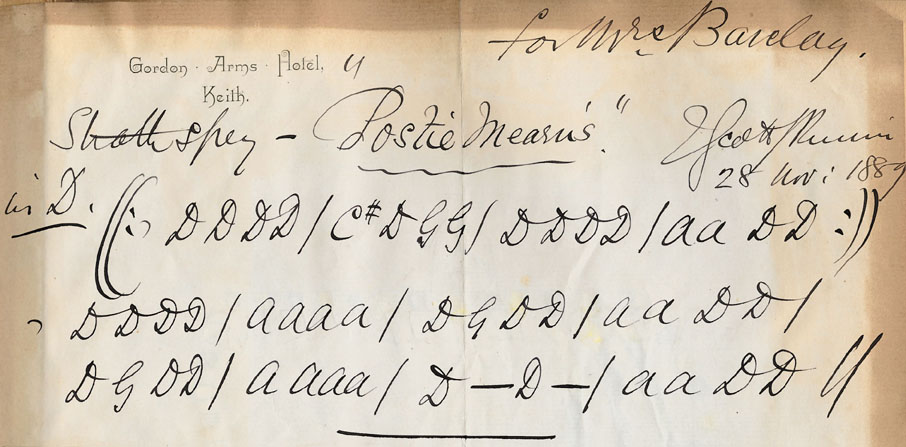 for Mrs Barclay.
Gordon · Arms · Hotel,
Keith.
Strathspey – "Postie Mearns"
J Scott Skinner
28 Nov: 1889
in D. ((: DDDD / C# D G G / DDDD / aa DD :))
DDDD / aaaa / D G D D / aa DD /
D G DD / a aaa / D — D — / aa DD //